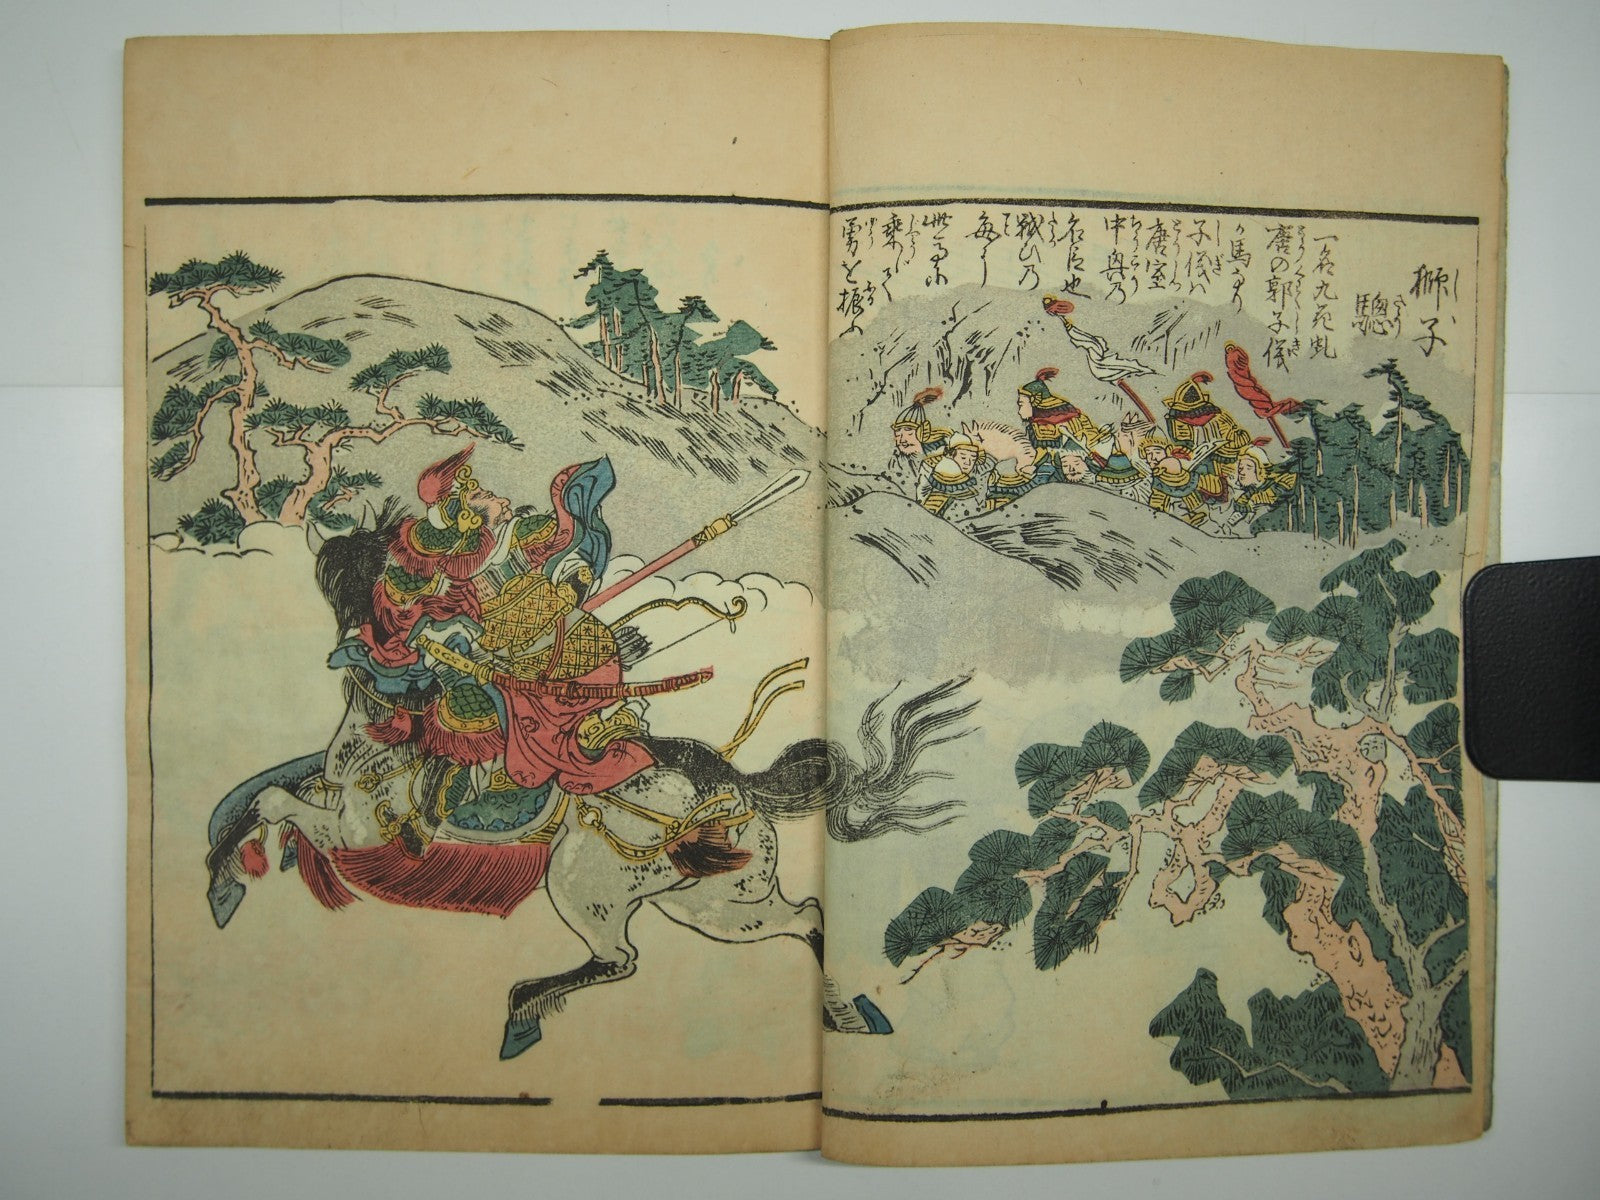 獅子
驄
一名九花虬
唐の郭子儀
の馬なり
子儀ハ
唐室
中興乃
名臣也
戦ひ乃
毎に
此馬に
乗して
勇を振ふ